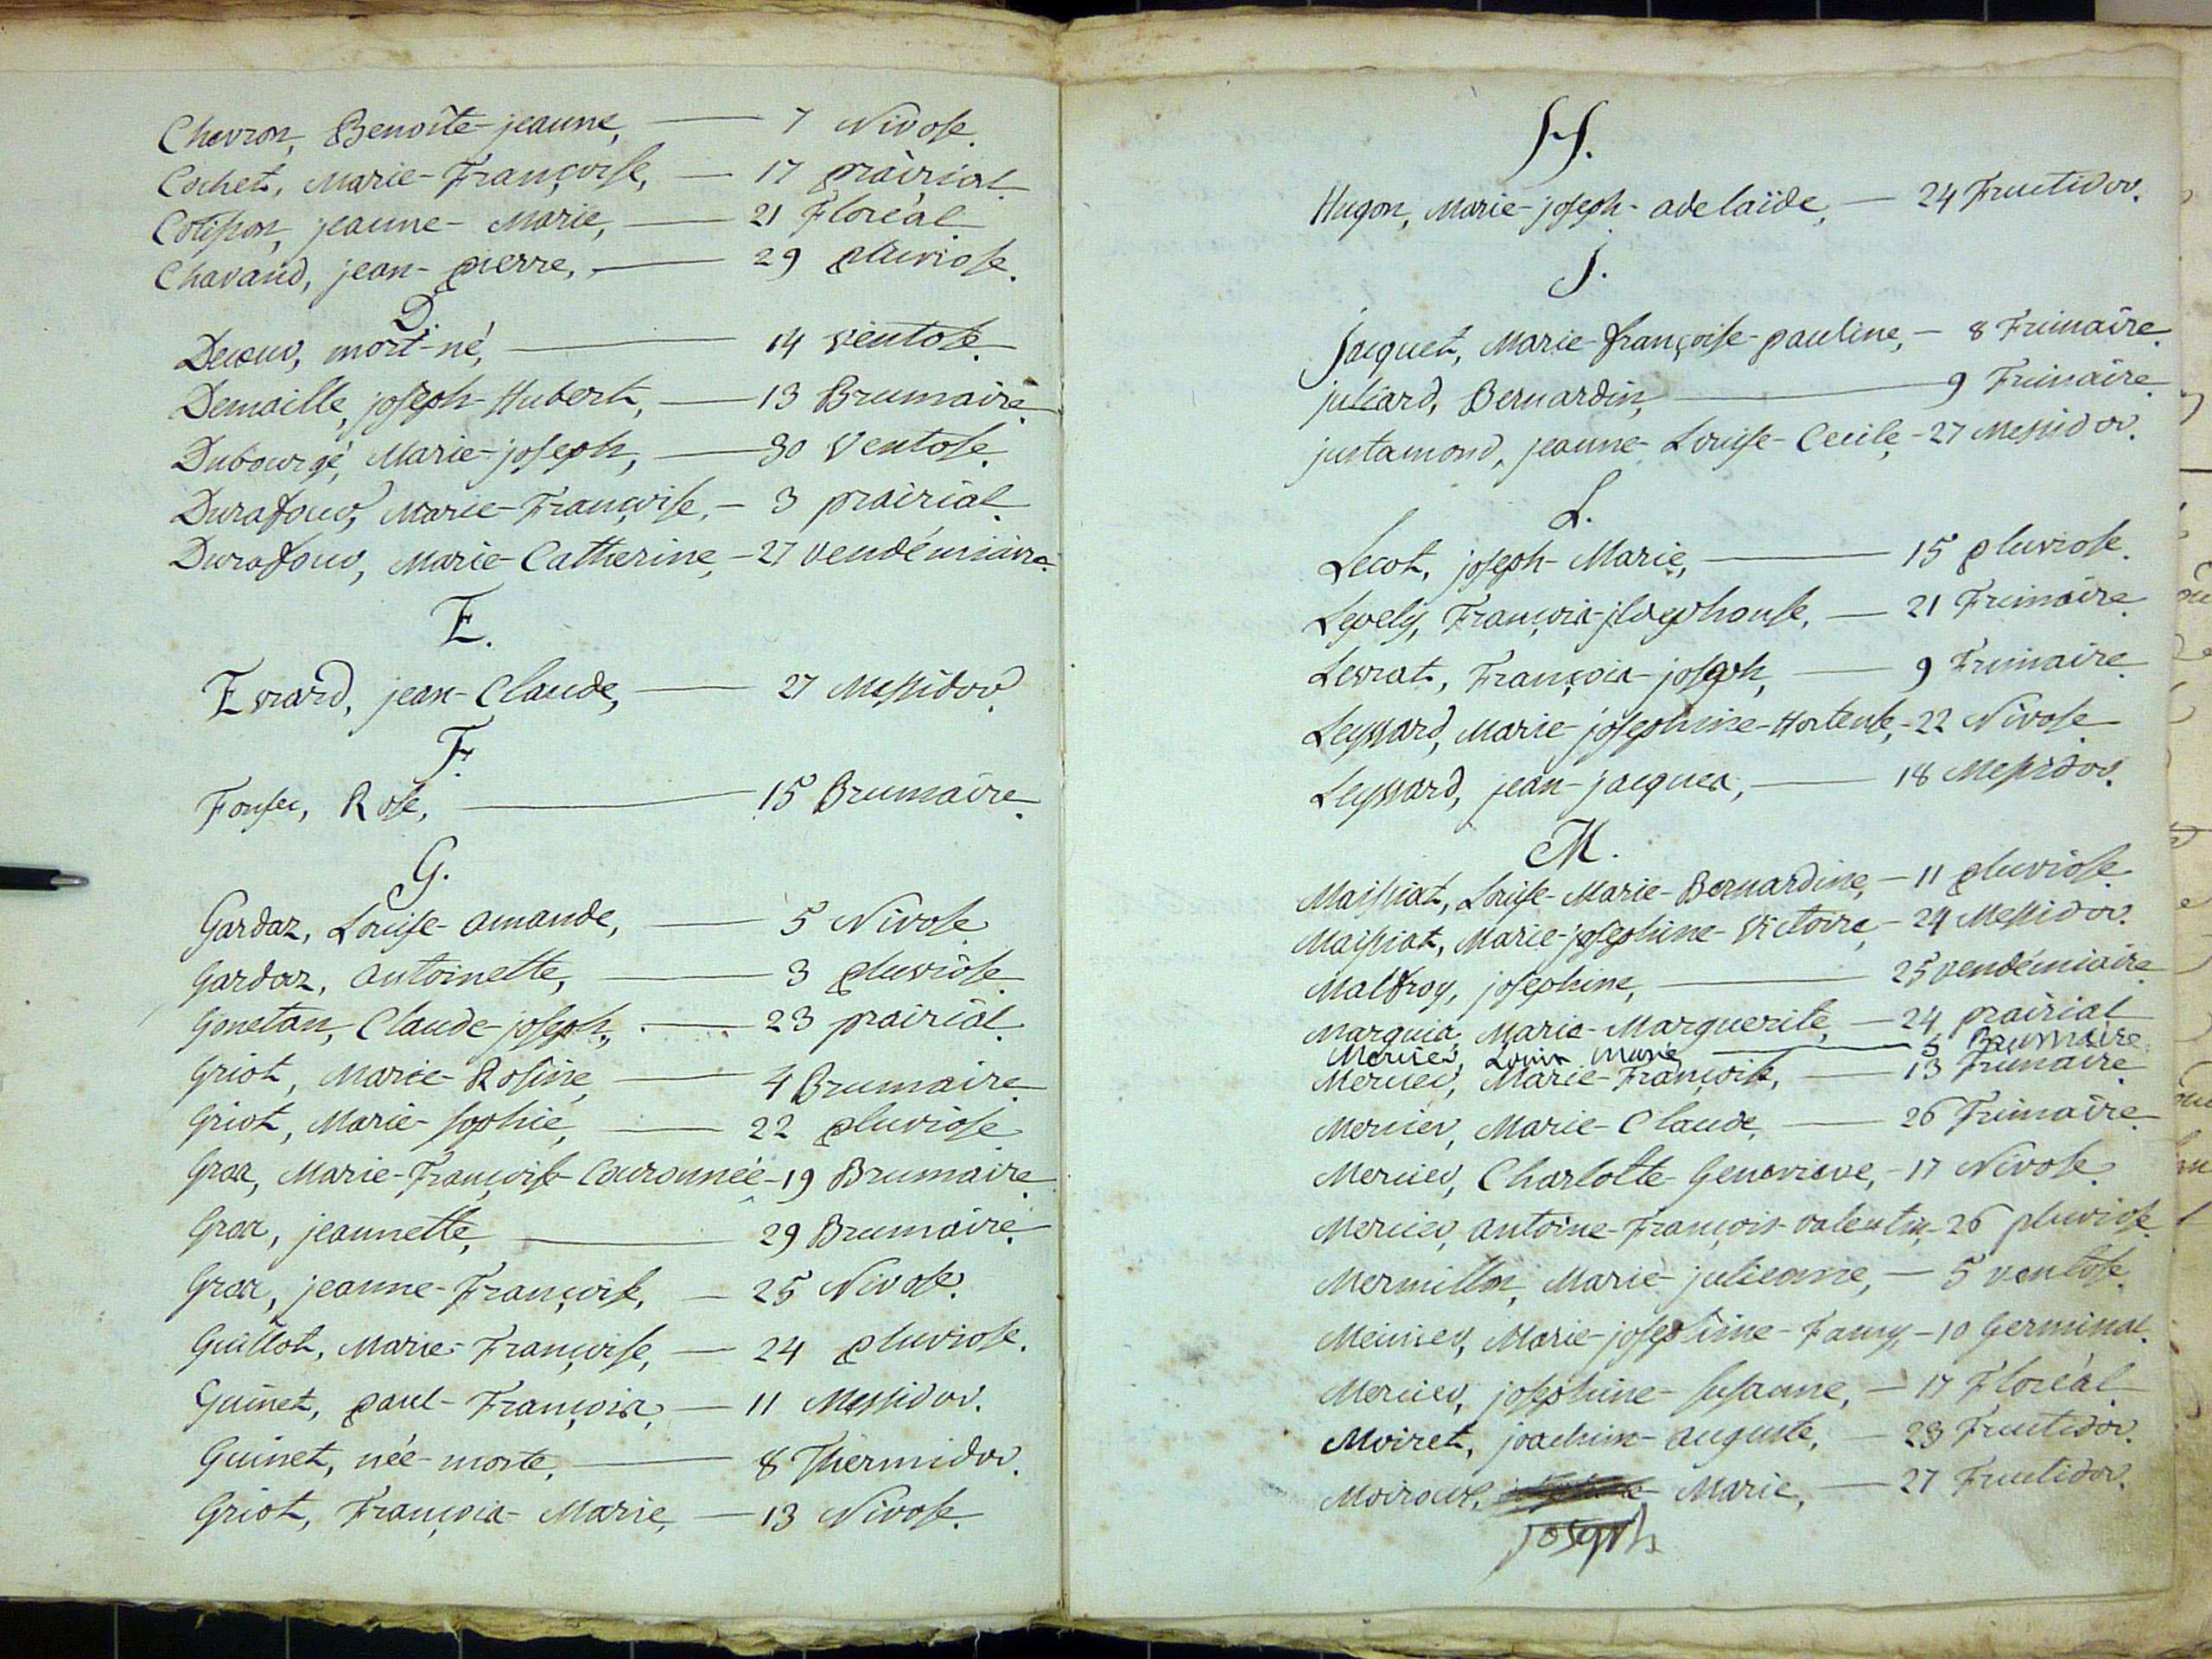 Chevron, Benoîte-jeanne, — 7 Nivose.
Cochet, Marie-Françoise, — 17 prairial
Cotisson, jeanne-Marie, — 21 Floréal
Chavand, jean-pierre, — 29 pluviose.
D.
mort-né, — 14 ventose.
Demaille, joseph-Hubert, — 13 Brumaire
Dubourgé, Marie-joseph, — 30 Ventose.
Durafour, Marie-Françoise, — 3 prairial.
Durafour, Marie-Catherine, — 27 vendémiaire.
E.
Evrard, jean-Claude, — 27 Messidor.
F.
Rose, — 15 Brumaire.
G.
Gardaz, Louise-amande, — 5 Nivose
Gardaz, antoinette, — 3 pluviose.
Gonetan, Claude-joseph, — 23 prairial.
Griot, Marie-Rosine, — 4 Brumaire
Griot, Marie-sophie, — 22 pluviose
Gras, Marie-Françoise-Couronnée — 19 Brumaire.
Gras, jeannette, — 29 Brumaire.
Gras, jeanne-Françoise, — 25 Nivose.
Guillot, Marie-Françoise, — 24 pluviose.
Guinet, paul-François, — 11 Messidor.
Guinet, née-morte, — 8 Thermidor.
Griot, François-Marie, — 13 Nivose.
H.
Hugon, Marie-joseph-adelaïde, — 24 Fructidor.
J.
jacquet, Marie-françoise-pauline, — 8 Frimaire.
juliard, Bernardin, — 9 Frimaire
justamond, jeanne-Louise-Cecile, — 27 Messidor.
L.
Lecot, joseph-Marie, — 15 pluviose.
Lepely, François-jldephonse, — 21 Frimaire
Levrat, François-joseph, — 9 Frimaire.
Leyssard, Marie-josephine-Hortense, — 22 Nivose
Leyssard, jean-jacques, — 18 Messidor.
M.
Maissiat, Louise-Marie-Bernardine, — 11 pluviose
Maissiat, Marie-josephine-Victoire, — 24 Messidor.
Malfroy, josephine, — 25 vendémiaire
Marquis, Marie-Marguerite, — 24 prairial
Mercier, Louis Marie, — 5 Brumaire.
Mercier, Marie-Françoise, — 13 Frimaire
Mercier, Marie-Claude, — 26 Frimaire.
Mercier, Charlotte-Genevieve, — 17 Nivose
Mercier, antoine-François-valentin, — 26 pluviose.
Mermillon, Marie-julienne, — 5 ventose.
Meunier, Marie-josephine-Fanny, — 10 Germinal.
Mercier, josephine-susanne, — 17 Floréal
Moiret, joachim-auguste, — 23 Fructidor.
Moiroud, Marie, — 27 Fructidor.
joseph